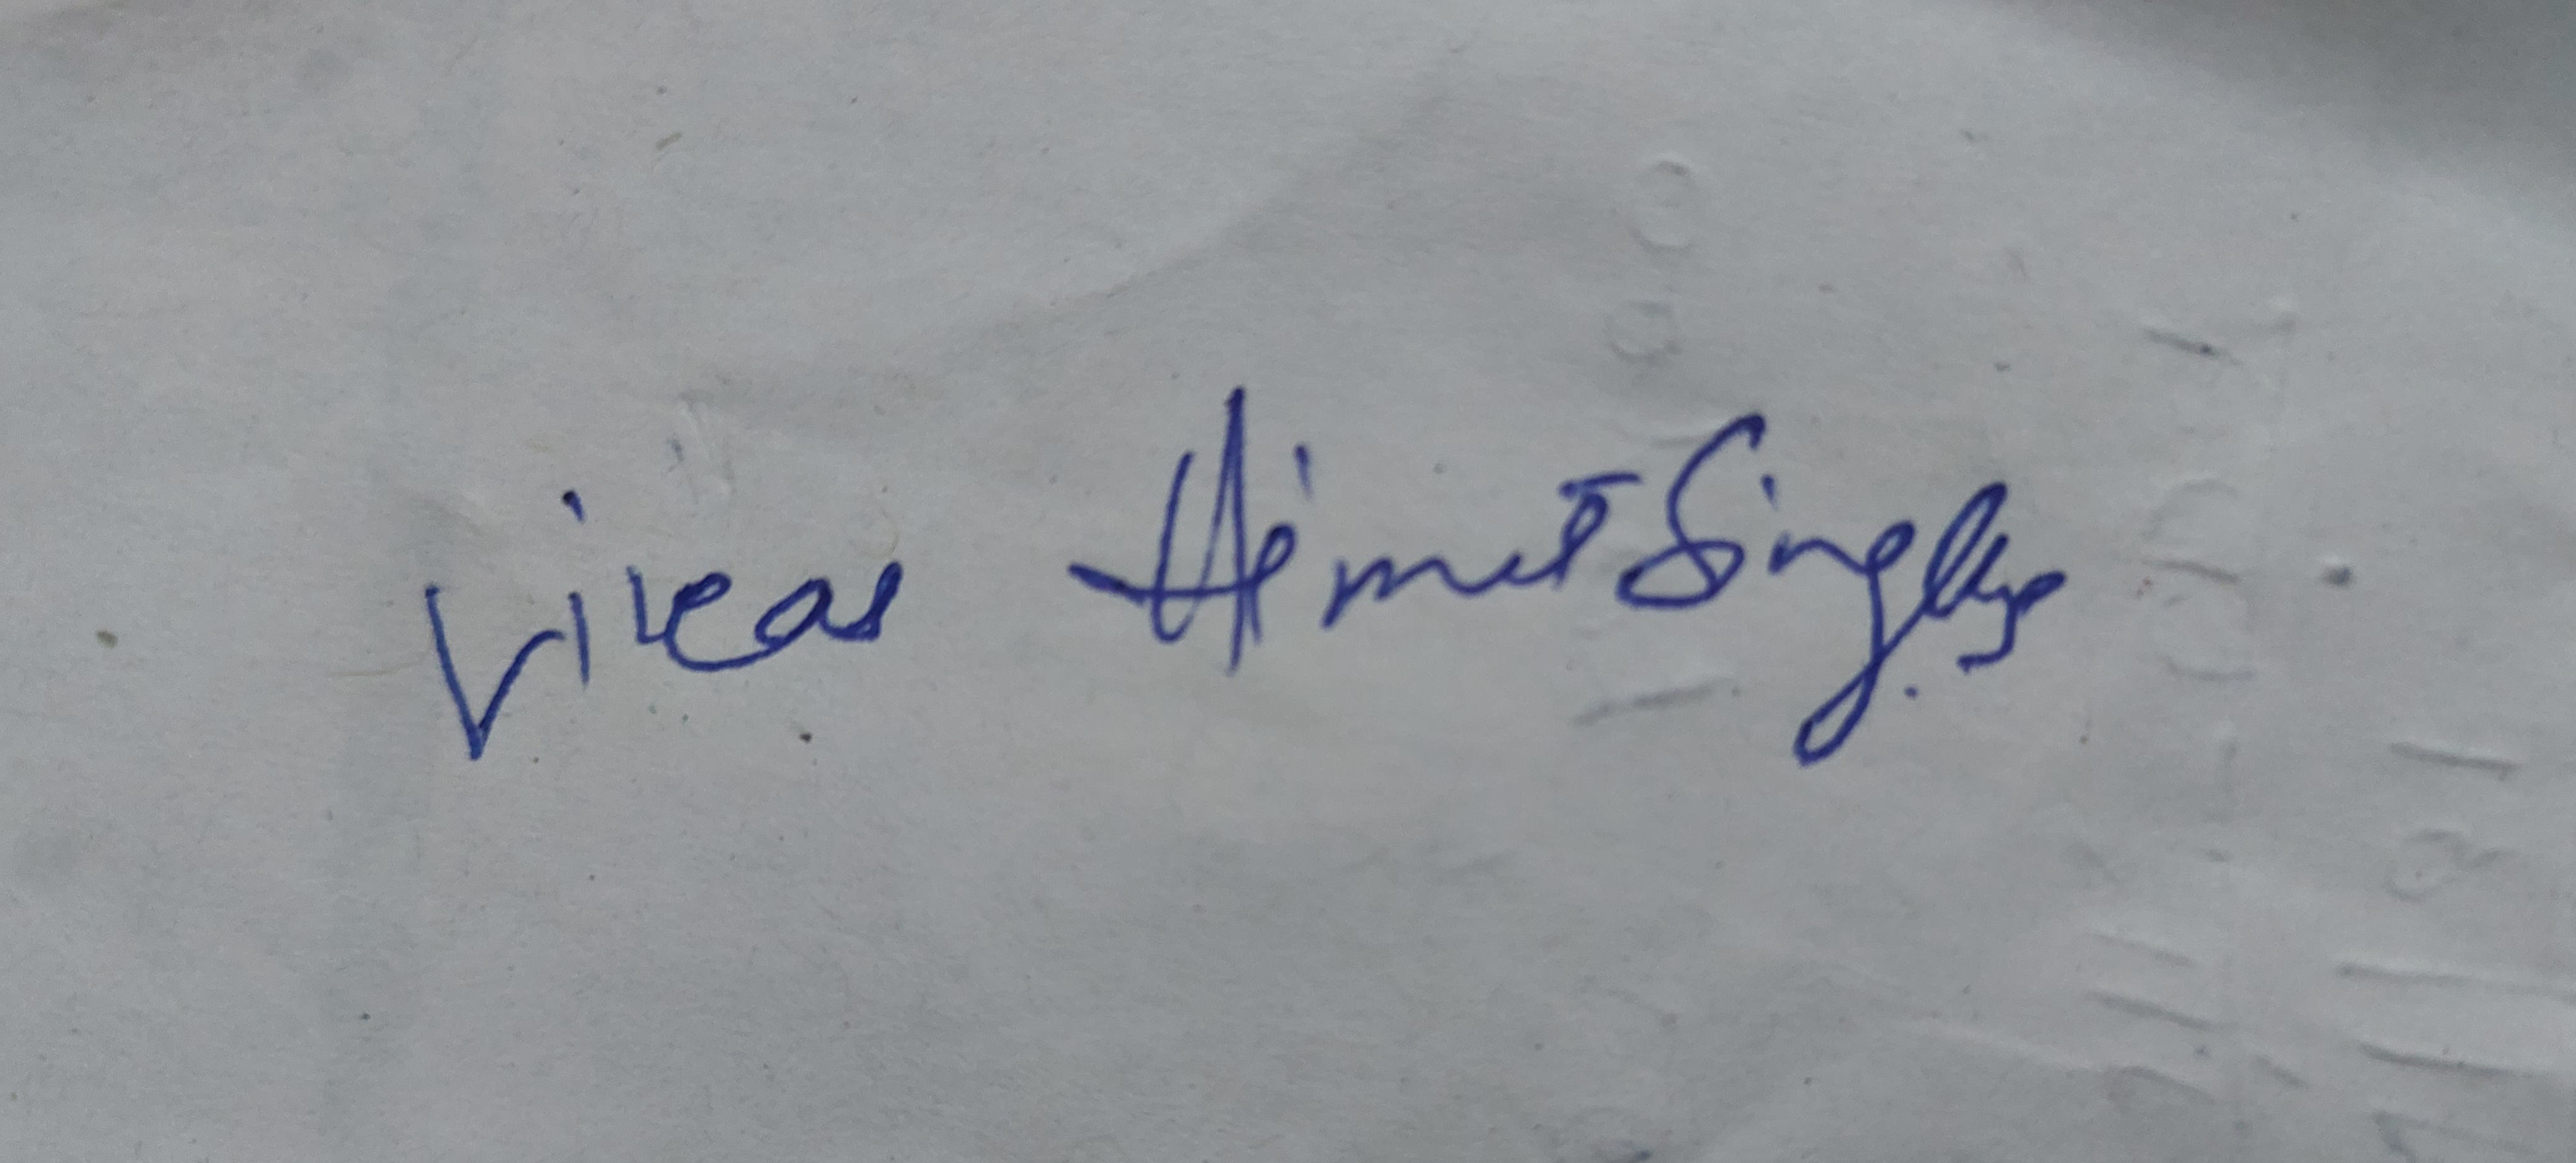 Vikas HimatSingh